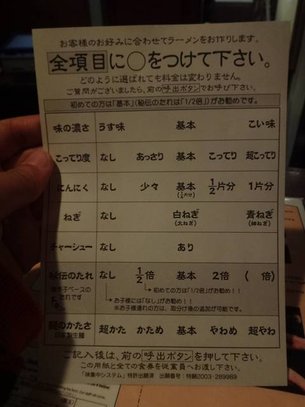 お客様のお好みに合わせてラーメンをお作りします。
全項目に○をつけて下さい。
どのように選ばれても料金は変わりません。
ご質問がございましたら、前の呼出ボタンでお呼び下さい。
初めての方は「基本」(秘伝のたれは「1/2倍」)がお勧めです。
味の濃さ うす味 基本 こい味
こってり度 なし あっさり 基本 こってり 超こってり
にんにく なし 少々 基本 1/2片分 1片分
ねぎ なし 白ねぎ 青ねぎ
チャーシュー なし あり
秘伝のたれ なし 1/2倍 基本 2倍 ( 倍)
初めての方は「1/2倍」がお勧め!!
お子様には「なし」がお勧め!!
麺のかたさ 超かた かため 基本 やわめ 超やわ
ご記入後は、前の呼出ボタンを押して下さい。
この用紙と全ての食券を従業員へお渡し下さい。
「味集中システム」特許出願済 出願番号:特願2003-289989